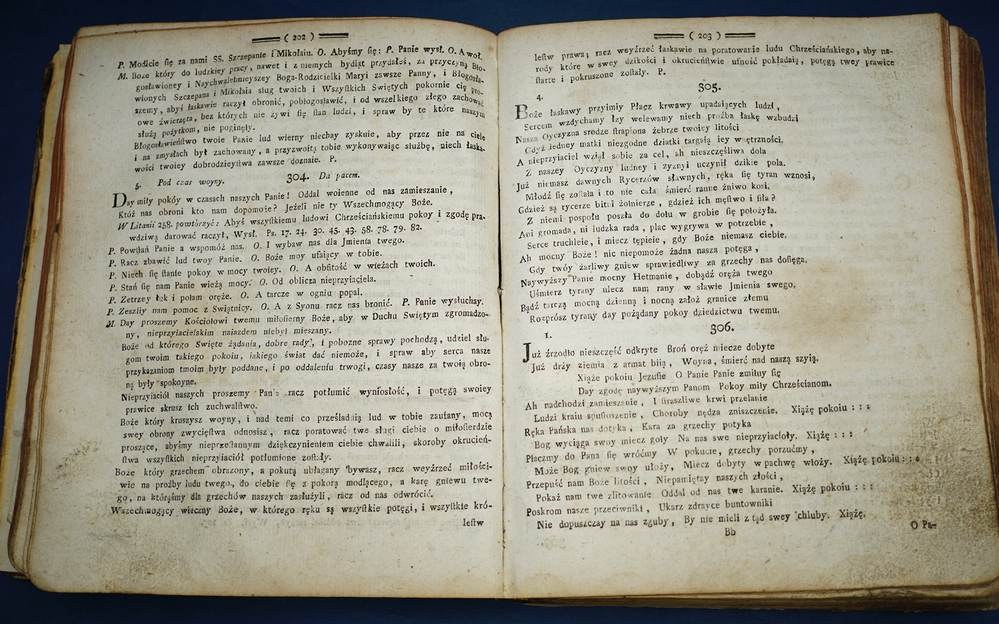 ( 202 )
P. Módlcie się za nami SS. Szczepanie i Mikołaiu. O. Abyśmy się: P. Panie wysł. O. A woł.
M. Boże który do ludzkiey pracy, nawet i z niemych bydląt przydałeś, za przyczyną Bło-
gosławioney i Naychwalebnieyszey Boga-Rodzicielki Maryi zawsze Panny, i Błogosła-
wionych Szczepana i Mikołaia sług twoich i Wszystkich Swiętych pokornie cię pro-
szemy, abyś łaskawie raczył obronić, pobłogosławić, i od wszelkiego złego zachować
owe źwierzęta, bez których nie żywi się stan ludzi, i spraw by te które naszym
służą pożytkom, nie poginęły.
Błogosławieństwo twoie Panie lud wierny niechay zyskuie, aby przez nie na ciele
i na zmysłach był zachowany, a przyzwoitą tobie wykonywaiąc służbę, niech łaska-
wości twoiey dobrodzieystwa zawsze doznaie. P.
5. Pod czas woyny. 304. Da pacem.
Day miły pokóy w czasach naszych Panie! Oddal woienne od nas zamieszanie,
Któż nas obroni kto nam dopomoże? Jeżeli nie ty Wszechmogący Boże.
W Litanii 258. powtórzyć: Abyś wszystkiemu ludowi Chrześciańskiemu pokoy i zgodę pra-
wdziwą darować raczył, Wysł. Ps. 17. 24. 30. 45. 43. 58. 78. 79. 82.
P. Powstań Panie a wspomóż nas. O. I wybaw nas dla Jmienia twego.
P. Racz zbawić lud twoy Panie. O. Boże moy ufaiący w tobie.
P. Niech się stanie pokoy w mocy twoiey. O. A obfitość w wieżach twoich.
P. Stań się nam Panie wieżą mocy. O. Od oblicza nieprzyiaciela.
P. Zetrzey łuk i połam oręże. O. A tarcze w ogniu popal.
P. Zeszliy nam pomoc z Swiątnicy. O. A z Syonu racz nas bronić. P. Panie wysłuchay.
M. Day proszemy Kościołowi twemu miłosierny Boże, aby w Duchu Swiętym zgromadzo-
ny, nieprzyiacielskim naiazdem niebył mieszany.
Boże od którego Swięte żądania, dobre rady, i pobożne sprawy pochodzą, udziel słu-
gom twoim takiego pokoiu, iakiego świat dać niemoże, i spraw aby serca nasze
przykazaniom twoim były poddane, i po oddaleniu trwogi, czasy nasze za twoią obro-
ną były spokoyne.
Nieprzyiaciół naszych proszemy Panie racz potłumić wyniosłość, i potęgą swoiey
prawice skrusz ich zuchwalstwo.
Boże który kruszysz woyny, i nad temi co prześladaią lud w tobie zaufany, mocą
swey obrony zwycięstwa odnosisz, racz poratować twe sługi ciebie o miłosierdzie
proszące, abyśmy nieprzestannym dziękczynieniem ciebie chwalili, skoroby okrucień-
stwa wszystkich nieprzyiaciół potłumione zostały.
Boże który grzechem obrażony, a pokutą ubłagany bywasz, racz weyźrzeć miłości-
wie na prośby ludu twego, do ciebie się z pokorą modlącego, a karę gniewu twe-
go, na którąśmy dla grzechów naszych zasłużyli, racz od nas odwrócić.
Wszechmogący wieczny Boże, w którego ręku są wszystkie potęgi, i wszystkie kró-
lestw
( 203 )
lestw prawa; racz weyźrzeć łaskawie na poratowanie ludu Chrześciańskiego, aby na-
rody które w swey dzikości i okrucieństwie ufność pokładaią, potęgą twey prawice
starte i pokruszone zostały. P.
305.
4.
Boże łaskawy przyimiy Płacz krwawy upadaiących ludzi,
Sercem wzdychamy łzy welewamy niech proźba łaskę wzbudzi
Nasza Oyczyzna srodze strapiona żebrze twoiey litości
Gdyż iedney matki niezgodne dziatki targaią iey wnętrzności.
A nieprzyiaciel wziął sobie za cel, ah nieszczęśliwa dola
Z naszey Oyczyzny ludney i żyzney uczynił dzikie pola.
Już niemasz dawnych Rycerzów sławnych, ręka się tyran wznosi,
Młodź się została i to nie cała śmierć ranne żniwo kosi,
Gdzież są rycerze bitni żołnierze, gdzież ich męstwo i siła?
Z niemi pospołu poszła do dołu w grobie się położyła.
Ani gromada, ni ludzka rada, plac wygrywa w potrzebie,
Serce truchleie, i miecz tępieie, gdy Boże niemasz ciebie.
Ah mocny Boże! nic niepomoże żadna nasza potęga,
Gdy twóy żarliwy gniew sprawiedliwy za grzechy nas dosięga.
Naywyższy Panie mocny Hetmanie, dobądź oręża twego
Uśmierz tyrany ulecz nam rany w sławie Jmienia swego.
Bądź tarczą mocną dzienną i nocną założ granice złemu
Rozprósz tyrany day pożądany pokoy dziedzictwu twemu.
306.
1.
Już źrzodło nieszczęść odkryte Broń oręż miecze dobyte
Już drży ziemia z armat biią, Woyna, śmierć nad naszą szyią.
Xiąże pokoiu Jezusie O Panie Panie zmiłuy się
Day zgodę naywyższym Panom Pokoy miły Chrześcianom.
Ah nadchodzi zamieszanie, I straszliwe krwi przelanie
Ludzi kraiu spustoszenie, Choroby nędza zniszczenie. Xiążę pokoiu : : :
Ręka Pańska nas dotyka, Kara za grzechy potyka
Bog wyciąga swoy miecz goły Na nas swe nieprzyiacioły. Xiążę : : :
Płaczmy do Pana się wróćmy W pokucie, grzechy porzućmy,
Może Bog gniew swoy ułoży, Miecz dobyty w pochwę włoży. Xiążę pokoiu : : :
Przepuść nam Boże litości, Niepamiętay naszych złości,
Pokaż nam twe zlitowanie Oddal od nas twe karanie. Xiążę pokoiu : : :
Poskrom nasze przeciwniki, Ukarz zdrayce buntowniki
Nie dopuszczay na nas zguby, By nie mieli z tąd swey chluby. Xiążę.
Bb
O Pa-